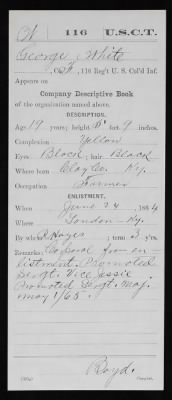 W | 116 | U.S.C.T.
George White
Co. , 116 Reg't U. S. Col'd Inf.
Appears on
Company Descriptive Book
of the organization named above.
DESCRIPTION.
Age 19 years; height 5 feet 9 inches.
Complexion Yellow
Eyes Black; hair Black
Where born Clay Co. Ky.
Occupation Farmer
ENLISTMENT.
When June 24, 1864
Where London Ky.
By whom Hayes; term 3 y'rs.
Remarks: Corporal from en-
listment. Promoted
Sergt. Vice Jessie
Promoted Sergt. Maj.
May 1/65.
Boyd.
Copyist.